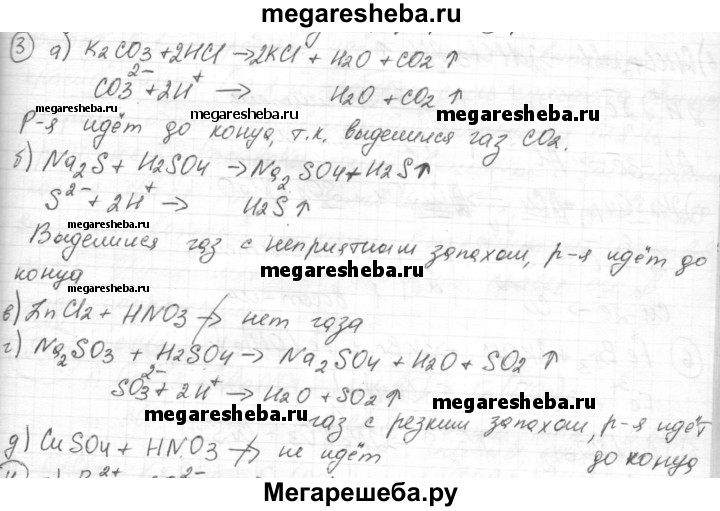 megaresheba.ru
3 а) K2CO3 + 2HCl → 2KCl + H2O + CO2 ↑
CO3 2- + 2H+ → H2O + CO2 ↑
megaresheba.ru megaresheba.ru
Р-я идёт до конца, т.к. выделился газ CO2.
б) Na2S + H2SO4 → Na2SO4 + H2S ↑
S2- + 2H+ → H2S ↑
megaresheba.ru
Выделился газ с неприятным запахом, р-я идёт до
конца
megaresheba.ru
в) ZnCl2 + HNO3 ↛ нет газа
г) Na2SO3 + H2SO4 → Na2SO4 + H2O + SO2 ↑
SO3 2- + 2H+ → H2O + SO2 ↑
megaresheba.ru megaresheba.ru
газ с резким запахом, р-я идёт
д) CuSO4 + HNO3 ↛ не идёт до конца
Мегарешеба.ру